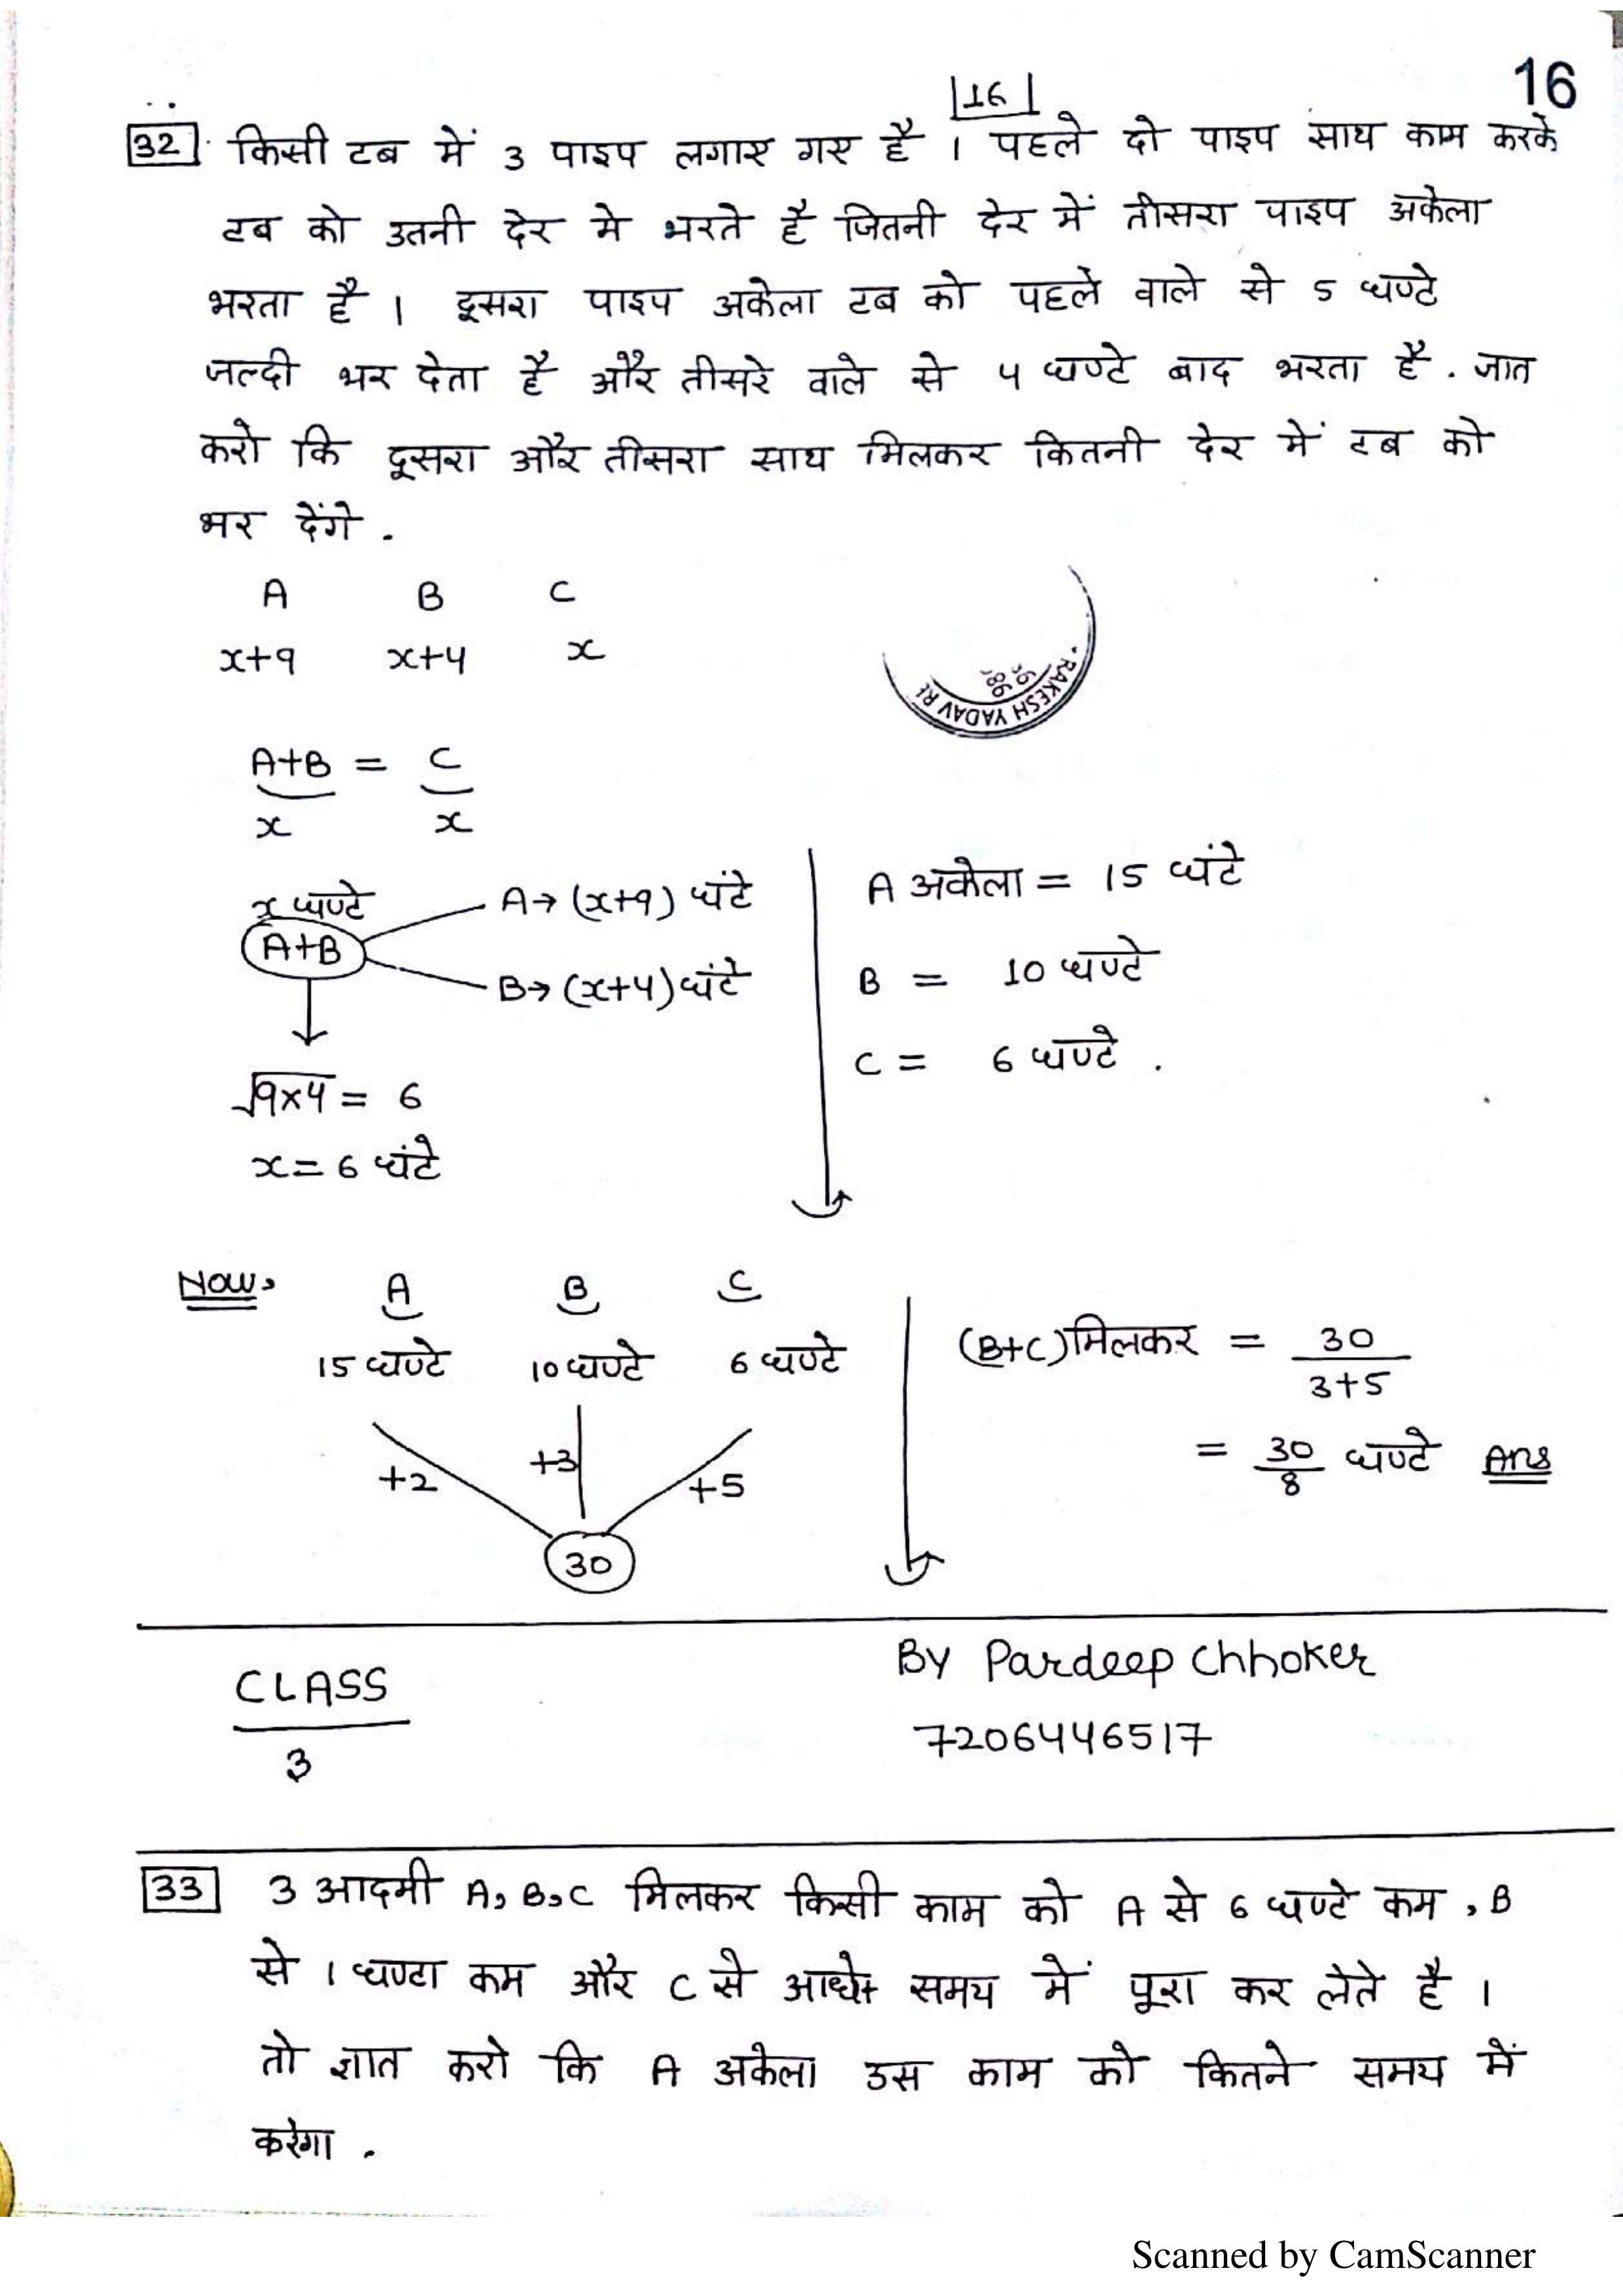 16
16
32. किसी टब में 3 पाइप लगाए गए है । पहले दो पाइप साथ काम करके
टब को उतनी देर मे भरते है जितनी देर में तीसरा पाइप अकेला
भरता है । दूसरा पाइप अकेला टब को पहले वाले से 5 घण्टे
जल्दी भर देता है और तीसरे वाले से 4 घण्टे बाद भरता है . ज्ञात
करो कि दूसरा और तीसरा साथ मिलकर कितनी देर में टब को
भर देंगे .
A B C
x+9 x+4 x
RAKESH YADAV
A+B = C
x x
x घण्टे A→ (x+9) घंटे
A+B
B→ (x+4) घंटे
↓
√9×4 = 6
x = 6 घंटे
A अकेला = 15 घंटे
B = 10 घण्टे
C = 6 घण्टे .
Now, A B C
15 घण्टे 10 घण्टे 6 घण्टे
+2 +3 +5
30
(B+C) मिलकर = 30
3+5
= 30/8 घण्टे Ans
CLASS
3
By Pardeep Chhoker
7206446517
33 3 आदमी A, B, C मिलकर किसी काम को A से 6 घण्टे कम , B
से 1 घण्टा कम और C से आधे समय में पूरा कर लेते है ।
तो ज्ञात करो कि A अकेला उस काम को कितने समय में
करेगा .
Scanned by CamScanner